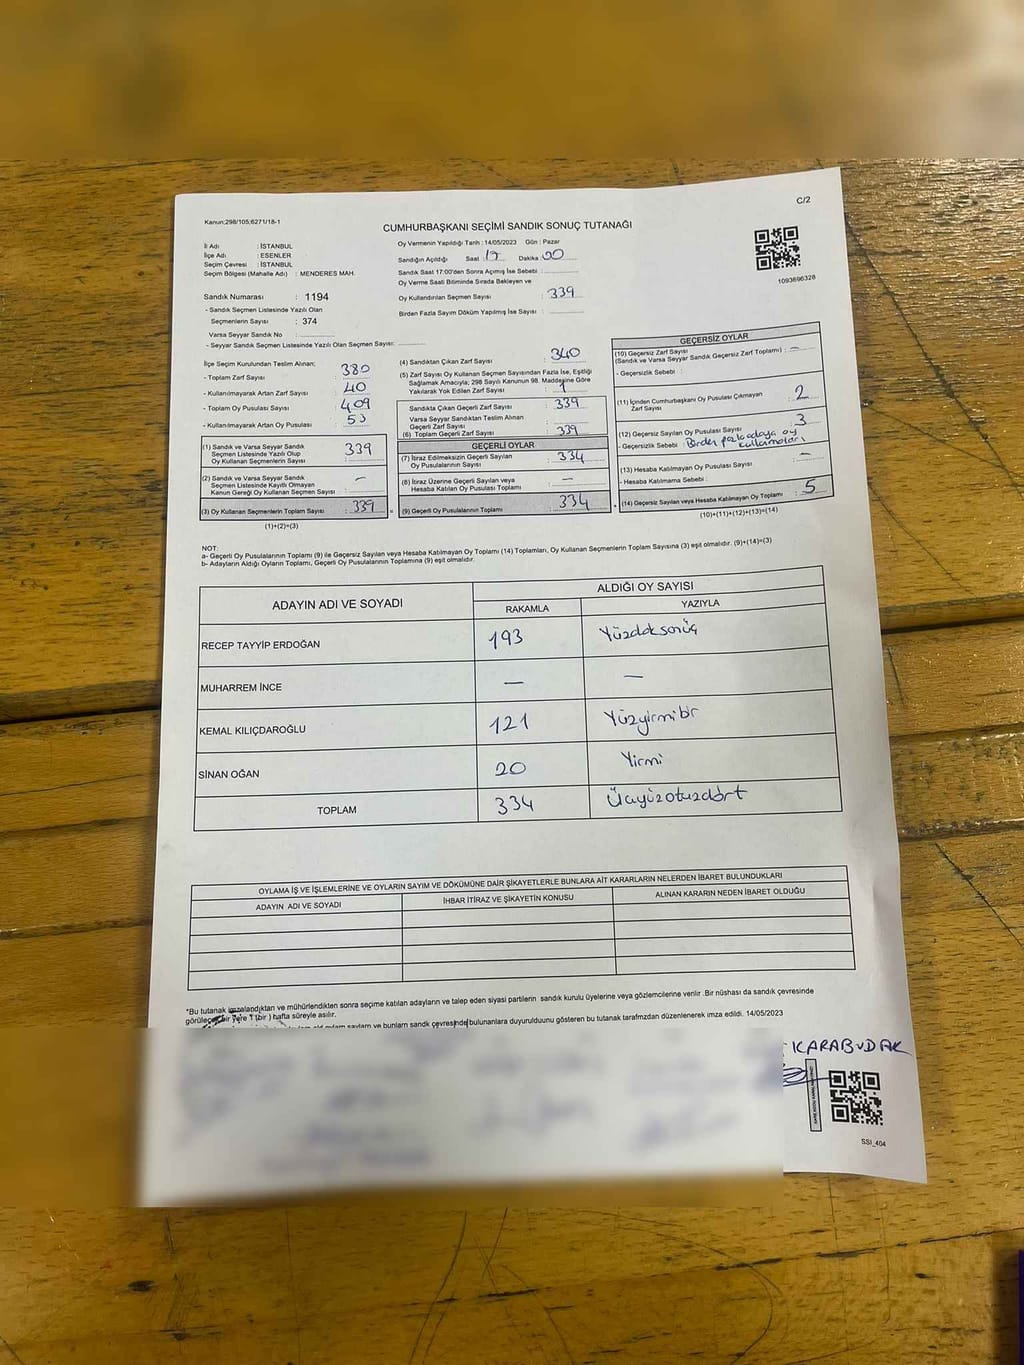 C/2
Kanun;298/105;6271/18-1
CUMHURBAŞKANI SEÇİMİ SANDIK SONUÇ TUTANAĞI
İl Adı : İSTANBUL
İlçe Adı : ESENLER
Seçim Çevresi : İSTANBUL
Seçim Bölgesi (Mahalle Adı) : MENDERES MAH.
Sandık Numarası : 1194
- Sandık Seçmen Listesinde Yazılı Olan
Seçmenlerin Sayısı : 374
Varsa Seyyar Sandık No :
- Seyyar Sandık Seçmen Listesinde Yazılı Olan Seçmen Sayısı:
Oy Vermenin Yapıldığı Tarih : 14/05/2023 Gün : Pazar
Sandığın Açıldığı Saat : 17 Dakika : 00
Sandık Saat 17:00'den Sonra Açmış İse Sebebi :
Oy Verme Saati Bitiminde Sırada Bekleyen ve
Oy Kullandırılan Seçmen Sayısı : 339
Birden Fazla Sayım Döküm Yapılmış İse Sayısı :
1093696328
İlçe Seçim Kurulundan Teslim Alınan;
- Toplam Zarf Sayısı : 380
- Kullanılmayarak Artan Zarf Sayısı : 40
- Toplam Oy Pusulası Sayısı : 409
- Kullanılmayarak Artan Oy Pusulası : 53
(1) Sandık ve Varsa Seyyar Sandık
Seçmen Listesinde Yazılı Olup
Oy Kullanan Seçmenlerin Sayısı : 339
(2) Sandık ve Varsa Seyyar Sandık
Seçmen Listesinde Kayıtlı Olmayan
Kanun Gereği Oy Kullanan Seçmen Sayısı : —
(3) Oy Kullanan Seçmenlerin Toplam Sayısı : 339
(1)+(2)=(3)
(4) Sandıktan Çıkan Zarf Sayısı : 340
(5) Zarf Sayısı Oy Kullanan Seçmen Sayısından Fazla İse, Eşitliği
Sağlamak Amacıyla; 298 Sayılı Kanunun 98. Maddesine Göre
Yakılarak Yok Edilen Zarf Sayısı : 1
Sandıkta Çıkan Geçerli Zarf Sayısı : 339
Varsa Seyyar Sandıktan Teslim Alınan
Geçerli Zarf Sayısı
(6) Toplam Geçerli Zarf Sayısı : 339
GEÇERLİ OYLAR
(7) İtiraz Edilmeksizin Geçerli Sayılan
Oy Pusulalarının Sayısı : 334
(8) İtiraz Üzerine Geçerli Sayılan veya
Hesaba Katılan Oy Pusulası Toplamı : —
(9) Geçerli Oy Pusulalarının Toplamı : 334
GEÇERSİZ OYLAR
(10) Geçersiz Zarf Sayısı
(Sandık ve Varsa Seyyar Sandık Geçersiz Zarf Toplamı) : —
- Geçersizlik Sebebi :
(11) İçinden Cumhurbaşkanı Oy Pusulası Çıkmayan
Zarf Sayısı : 2
(12) Geçersiz Sayılan Oy Pusulası Sayısı : 3
- Geçersizlik Sebebi : Birden fazla adaya oy
kullanmaları
(13) Hesaba Katılmayan Oy Pusulası Sayısı : —
- Hesaba Katılmama Sebebi :
(14) Geçersiz Sayılan veya Hesaba Katılmayan Oy Toplamı : 5
(10)+(11)+(12)+(13)=(14)
NOT:
a- Geçerli Oy Pusulalarının Toplamı (9) ile Geçersiz Sayılan veya Hesaba Katılmayan Oy Toplamı (14) Toplamları, Oy Kullanan Seçmenlerin Toplam Sayısına (3) eşit olmalıdır. (9)+(14)=(3)
b- Adayların Aldığı Oyların Toplamı, Geçerli Oy Pusulalarının Toplamına (9) eşit olmalıdır.
ADAYIN ADI VE SOYADI ALDIĞI OY SAYISI
RAKAMLA YAZIYLA
RECEP TAYYİP ERDOĞAN 193 Yüzdoksonüç
MUHARREM İNCE — —
KEMAL KILIÇDAROĞLU 121 Yüzyirmibir
SİNAN OĞAN 20 Yirmi
TOPLAM 334 Üçyüzotuzdört
OYLAMA İŞ VE İŞLEMLERİNE VE OYLARIN SAYIM VE DÖKÜMÜNE DAİR ŞİKAYETLERLE BUNLARA AİT KARARLARIN NELERDEN İBARET BULUNDUKLARI
ADAYIN ADI VE SOYADI İHBAR İTİRAZ VE ŞİKAYETİN KONUSU ALINAN KARARIN NEDEN İBARET OLDUĞU
*Bu tutanak imzalandıktan ve mühürlendikten sonra seçime katılan adayların ve talep eden siyasi partilerin sandık kurulu üyelerine veya gözlemcilerine verilir .Bir nüshası da sandık çevresinde
görülecek bir yere 1 (bir ) hafta süreyle asılır.
sayılan ve bunların sandık çevresinde bulunanlara duyurulduunu gösteren bu tutanak tarafmzdan düzenlenerek imza edildi. 14/05/2023
KARABUDAK
SSI_404